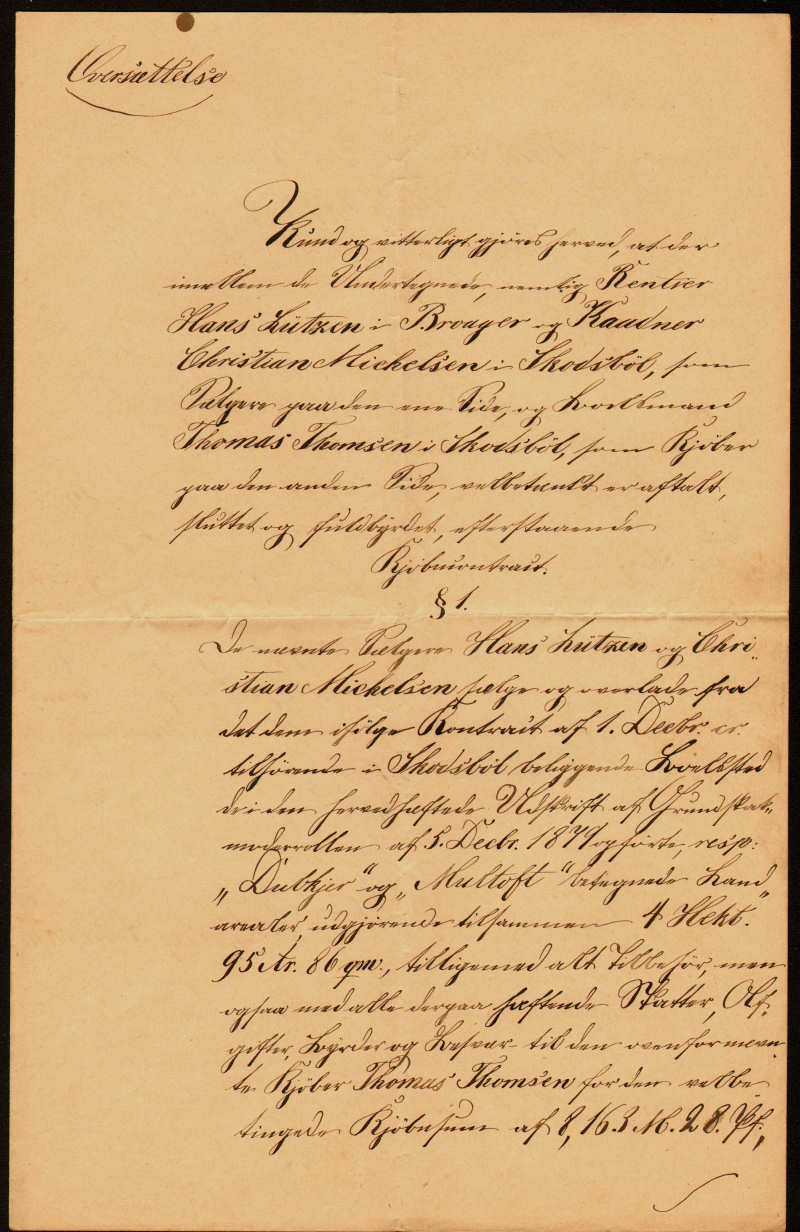 Oversættelse
Kund og vitterligt gjøres herved, at der
imellem de Undertegnede, nemlig Rentier
Hans Lützen i Broager og Kaadner
Christian Michelsen i Skodsböl, som
Sælgere paa den ene Side, og Boelsmand
Thomas Thomsen i Skodsböl, som Kjöber
paa den anden Side, velbetænkt er aftalt,
sluttet og fuldbyrdet, efterstaaende
Kjöbecontract.
§ 1.
De nævnte Sælgere Hans Lützen og Chri„
stian Michelsen sælge og overlade fra
det dem ifölge Kontract af 1. Decbr. cr.
tilhörende i Skodsböl beliggende Boelssted
de i den hervedhæftede Udskrift af Grundskat„
moderrollen af 5. Decbr. 1879 opförte, resp:
„Dubkjer“ og „Multoft“ betegnede Land„
arealer, udgjörende tilsammen 4 Hekt.
95 Ar. 86 qm., tilligemed alt Tilbehör, men
ogsaa med alle derpaa hæftende Skatter, Af„
gifter, Byrder og Besvær til den ovenfor nævn„
te Kjöber Thomas Thomsen for den velbe„
tingede Kjöbesum af 8,163 M. 28 Pf.,